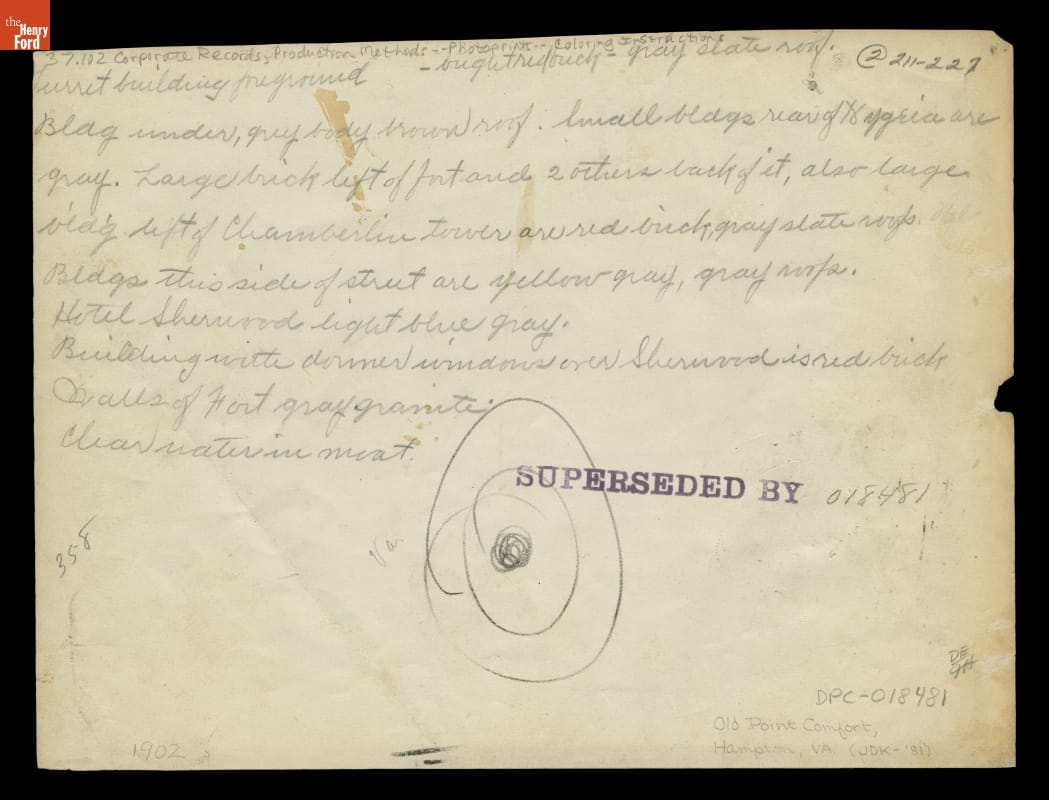 the
Henry
Ford
37.102 Corporate Records, Production Methods--Photoprints--Coloring Instructions
- bright red brick - gray slate roof.
② 211-227
urret building foreground
Bldg under, grey body brown roof. Small bldgs rear of Hygeia are
gray. Large brick left of fort and 2 others back of it, also large
bld'g left of Chamberlin tower are red brick, gray slate roofs.
Bldgs this side of street are yellow gray, gray roofs.
Hotel Sherwood light blue gray.
Building with dormer windows over Sherwood is red brick
Walls of Fort gray granite.
Clear water in moat.
SUPERSEDED BY 018481
358
Va.
DPC-018481
Old Point Comfort,
Hampton, VA. (JDK-'81)
1902